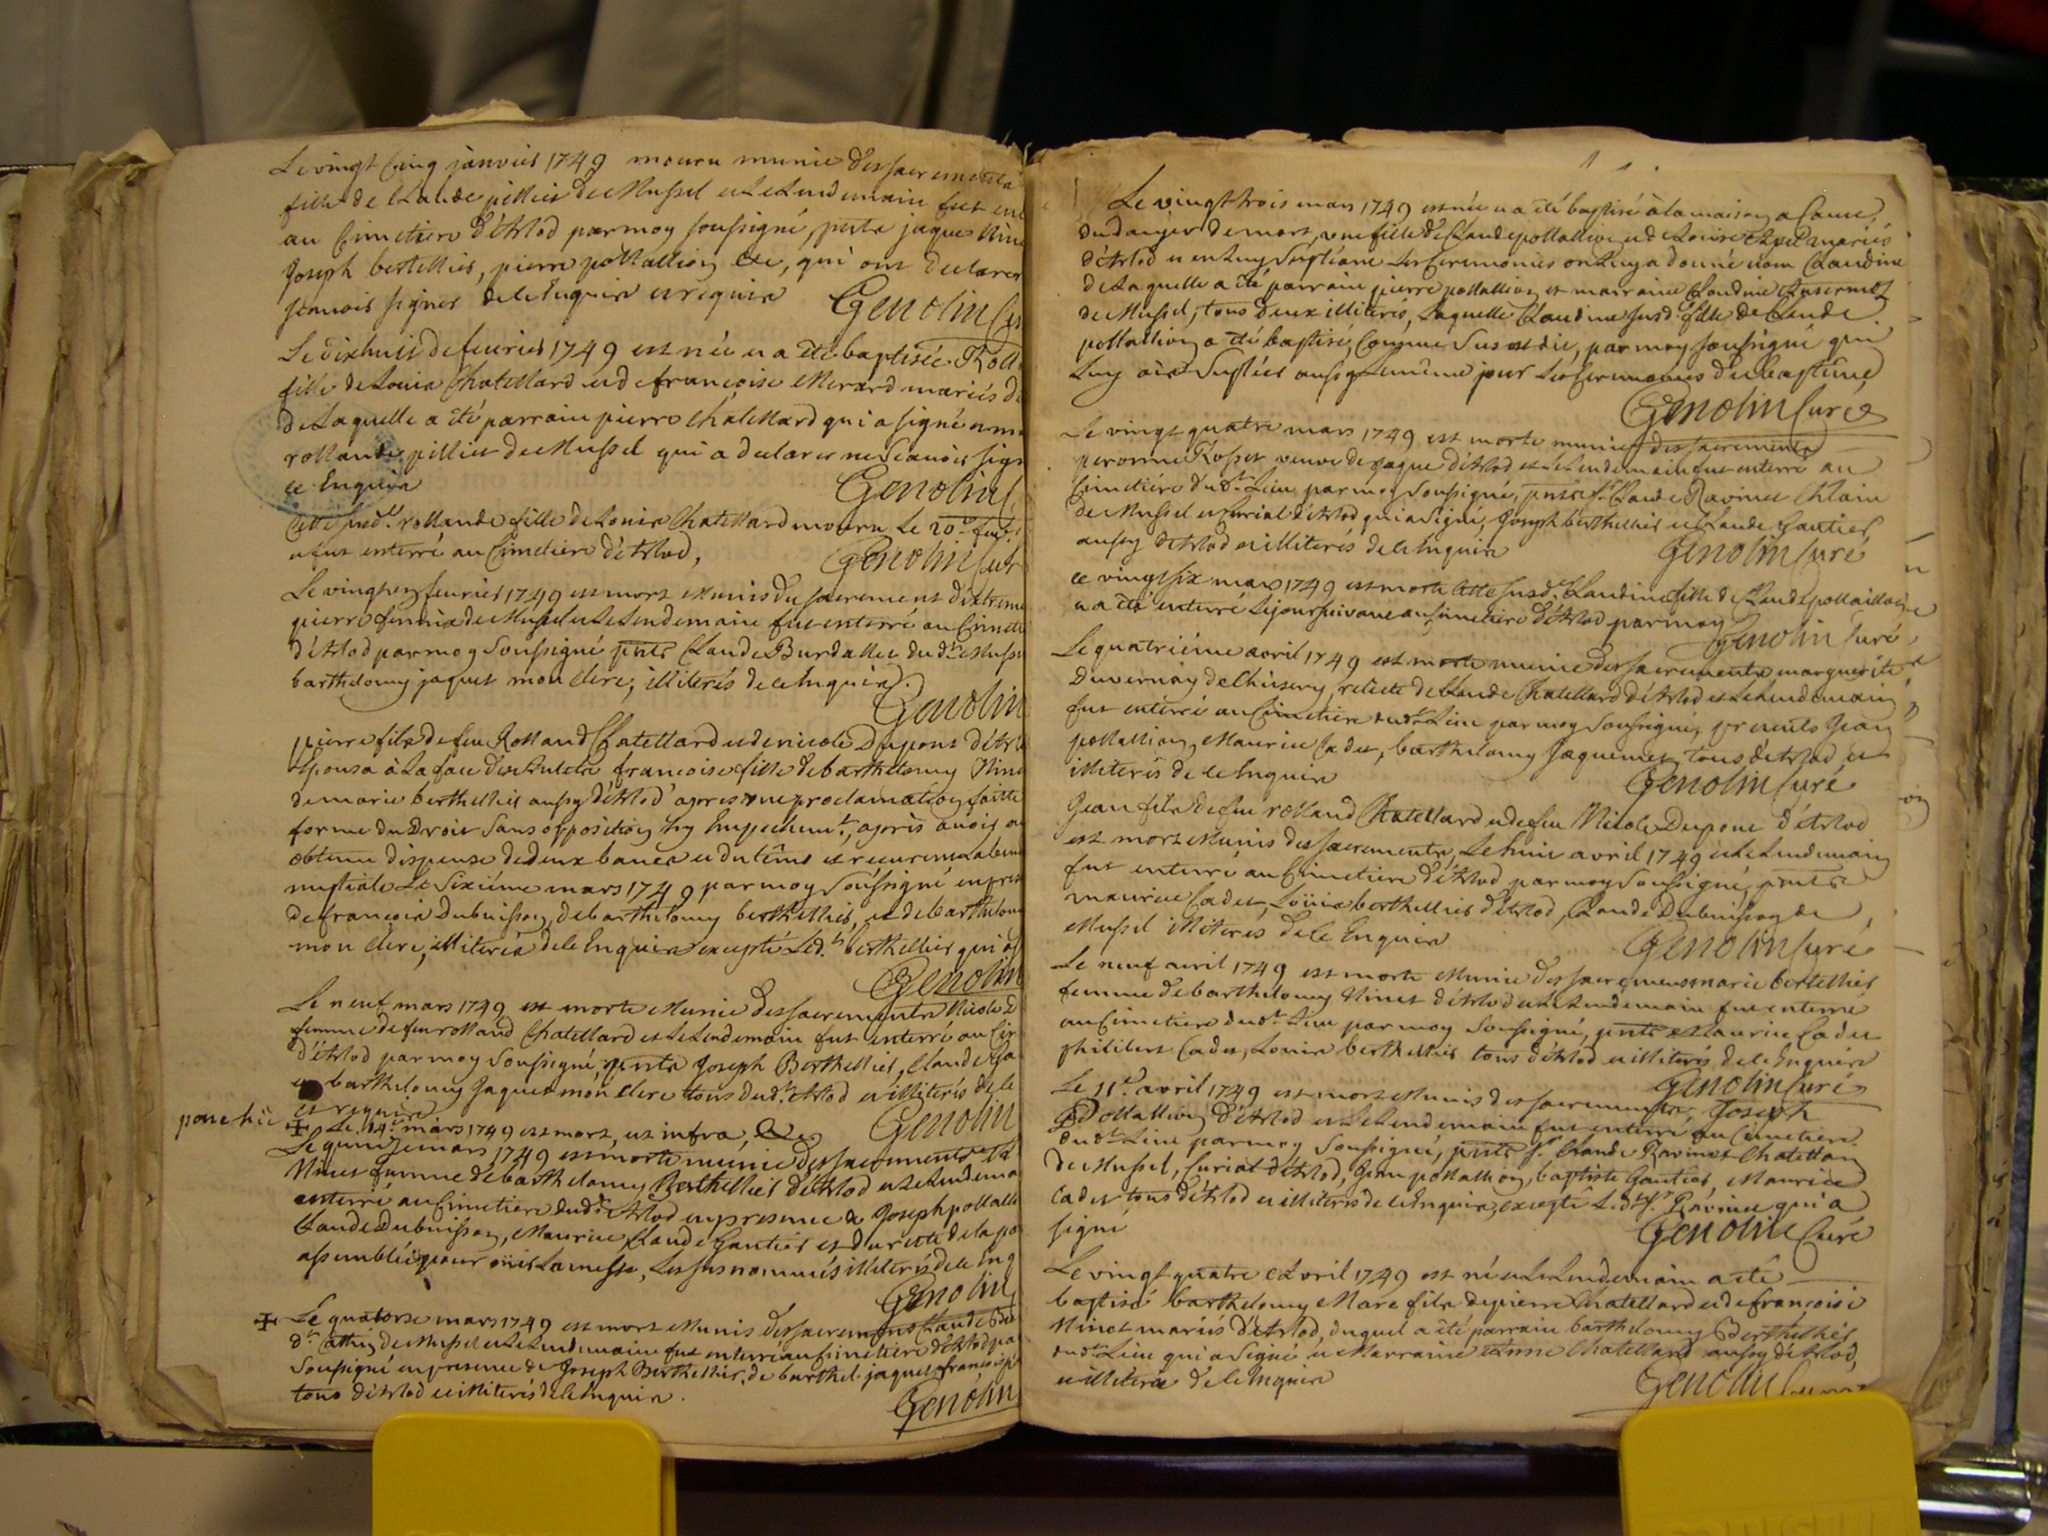 Le vingt Cinq janvier 1749 mouru munie des sacrements
fille de Claude pillier de Mussel et Le Lendemain fut en
au Cimetiere d'Arlod par moy soussigné, pnts jaques Nine
Joseph berthellier, pierre pollallion &c, qui ont declarer
scavoir signer de ce Enquis et requis Genolin Cu
Le dixhuit de feurier 1749 est née et a été baptisée Roll
fille de Louis Chatellard et de francoise Merard mariés d
de Laquelle a été parrain pierre Chatellard qui a signé et ma
rollande pillier de Mussel qui a declarer ne scavoir sig
ce Enquis Genolin C
Cette susd.te rollande fille de Louis Chatellard mouru Le 20.e feu.
et fut enterré au Cimetiere d'Arlod, Genolin Cur
Le vingt feurier 1749 est mort Munis du sacrement d'extreme
pierre de Mussel et Le Lendemain fut enterré au Cimeti
d'Arlod par moy Soussigné pnts Claude Burdallet dud.t Muss
barthelomy jaquet mon clerc, illiterés de ce Enquis.
Genolin
pierre fils de feu Rolland Chatellard et de nicole Dupont d'Arl
Epousa à La face des Autels francoise fille de barthelomy Nine
de marie berthellier aussy d'Arlod apres une proclamation faitte
forme du Droit sans opposition ny Empechem.t, après avoir
obtenu dispense de deux bancs et du tems et receurent La bene
nuptiale Le Sixiéme mars 1749 par moy Soussigné en pres
de francois Dubuisson, de barthelomy berthellier, et de barthelom
mon clerc, illiterés de ce Enquis excepté Led.t berthellier qui a s
Genolin
Le neuf mars 1749 est morte Munie des sacrements Nicole D
femme de feu rolland Chatellard et Le Lendemain fut enterré au Cim
d'Arlod par moy soussigné, pnts Joseph Berthellier, Claude Ga
et barthelomy Jaquet mon clerc tous dud.t Arlod et illiterés de ce
et requis Genolin
✠ Le 14.e mars 1749 est mort, ut infra, &c
Le quinze mars 1749 est morte munie des sacrements
Ninet femme de barthelomy Berthellier d'Arlod et Le Lendema
enterré au Cimetiere dud.t Arlod en presence de Joseph pollalli
Claude Dubuisson, Maurice Claude Gautier et du reste de la pa
assemblée pour ouir La messe, Les susnommés illiterés de ce Enq
Genolin
✠ Le quatorze mars 1749 est mort Munis des sacremens Claude
de Mussel et Le Lendemain fut enterré au Cimetiere d'Arlod pa
Soussigné en presence de Joseph Berthellier, de barthel. jaquet francois
tous d'Arlod et illiterés de ce Enquis. Genolin
Le vingt trois mars 1749 est née et a été baptisé à la maison a Cause
du danger de mort, une fille de Claude pollallion et de Louise mariés
d'Arlod et en Luy supléant Les Ceremonies on Luy a donné nom Claudine
de Laquelle a été parrain pierre pollallion et marraine Claudine
de Mussel, tous deux illiterés, Laquelle Claudine susd. fille de Claude
pollallion a été baptisé, Comme Sus est dit, par moy soussigné qui
Luy a Suplées aussy Le même jour Les Ceremonies du baptême
Genolin Curé
Le vingt quatre mars 1749 est morte munie des sacrements
peronne Rosset veuve de jaque d'Arlod et Le Lendemain fut enterré au
Cimetiere dud.t Lieu par moy Soussigné, pnts s.r Claude Ravinet
de Mussel et Curial d'Arlod qui a signé, Joseph berthellier et Claude Gautier
aussy d'Arlod et illiterés de ce Enquis Genolin Curé
Ce vingt six mars 1749 est morte Cette susd.te Claudine fille de Claude pollallion
et a été enterré Le jour suivant au Cimetiere d'Arlod par moy
Genolin Curé
Le quatriéme avril 1749 est morte munie des sacrements marguerite
Duvernay de Chézery, relicte de Claude Chatellard d'Arlod et Le Lendemain
fut enterré au Cimetiere dud.t Lieu par moy Soussigné, presents Jean
pollallion, Maurice Cadet, barthelomy Jaquemet, tous d'Arlod et
illiterés de ce Enquis Genolin Curé
Jean fils de feu rolland Chatellard et de feu Nicole Dupont d'Arlod
est mort Munis des sacrements, Le huit avril 1749 et Le Lendemain
fut enterré au Cimetiere d'Arlod par moy Soussigné, pnts
maurice Cadet, Loüis berthellier d'Arlod, Claude Dubuisson de
Mussel illiterés de ce Enquis Genolin Curé
Le neuf avril 1749 est morte Munie des sacremens marie berthellier
femme de barthelomy Ninet d'Arlod et Le Lendemain fut enterré
au Cimetiere dud.t Lieu par moy Soussigné, pnts Maurice Cadet
philibert Cadet, Louis berthellier tous d'Arlod et illiterés de ce Enquis
Genolin Curé
Le 11.e avril 1749 est mort Munis des sacrements Joseph
Pollallion d'Arlod et Le Lendemain fut enterré au Cimetiere
dud.t Lieu par moy Soussigné, pnts s.r Claude Ravinet Chatellain
de Mussel, Curial d'Arlod, Jean pollallion, baptiste Gautier, Maurice
Cadet tous d'Arlod et illiterés de ce Enquis, excepté Led.t s.r Ravinet qui a
signé Genolin Curé
Le vingt quatre Avril 1749 est né et Le Lendemain a été
baptisé barthelomy Marc fils de pierre Chatellard et de francoise
Ninet mariés d'Arlod, duquel a été parrain barthelomy Berthellier
dud.t Lieu qui a Signé et Marraine Chatellard aussy d'Arlod,
illiterée de ce Enquis Genolin Curé